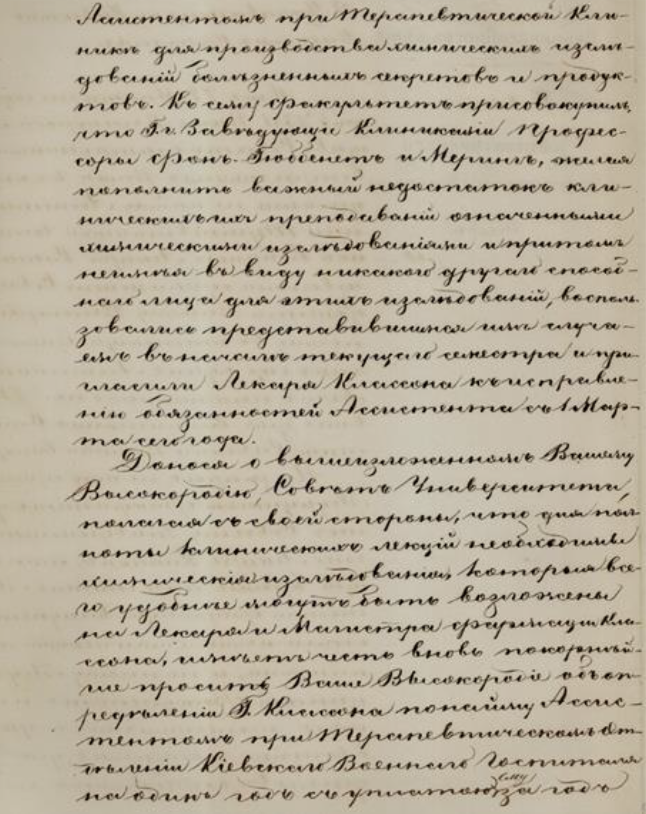 Ассистентомъ при Терапевтической Кли-
никѣ для производства химическихъ изслѣ-
дованій болѣзненныхъ секретовъ и продук-
товъ. Къ сему факультетъ присовокупилъ,
что Гг. Завѣдующіе Клиниками Профес-
соры фонъ-Гюббенетъ и Мерингъ, желая
пополнить важный недостатокъ кли-
ническихъ ихъ преподаваній означенными
химическими изслѣдованіями и притомъ
неимѣя въ виду никакого другаго способ-
наго лица для этихъ изслѣдованій, восполь
зовались представившимся имъ случа-
емъ въ началѣ текущаго семестра и при
гласили Лекаря Классона къ исправле-
нію обязанностей Ассистента съ 1 Мар-
та сего года.
Донося о вышеизложенномъ Вашему
Высокородію, Совѣтъ Университета,
полагая съ своей стороны, что для пол
ноты клиническихъ лекцій необходимы
химическія изслѣдованія, которыя все-
го удобнѣе могутъ быть возложены
на Лекаря и Магистра фармаціи Кла-
ссона, имѣетъ честь вновь покорнѣй-
ше просить Ваше Высокородіе объ оп
редѣленіи Г. Классона по найму Ассис-
тентомъ при Терапевтическомъ От
дѣленіи Кіевскаго Военнаго Госпиталя
на одинъ годъ съ уплатою ему за годъ